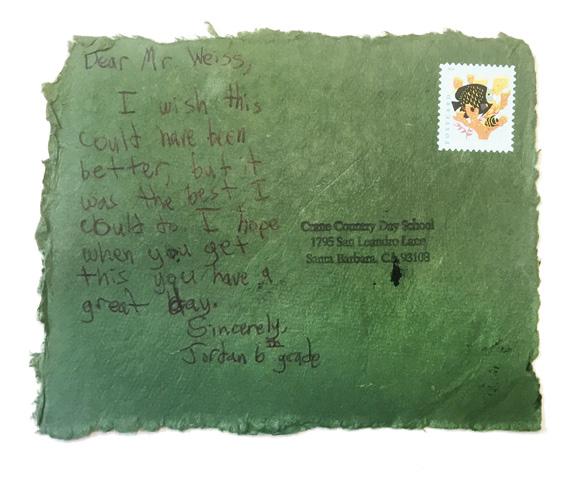 Dear Mr. Weiss,
I wish this
could have been
better, but it
was the best I
could do. I hope
when you get
this you have a
great day.
Sincerely,
Jordan 6th grade
Crane Country Day School
1795 San Leandro Lane
Santa Barbara, CA 93108